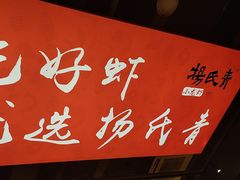 好虾
选杨氏青
杨氏青